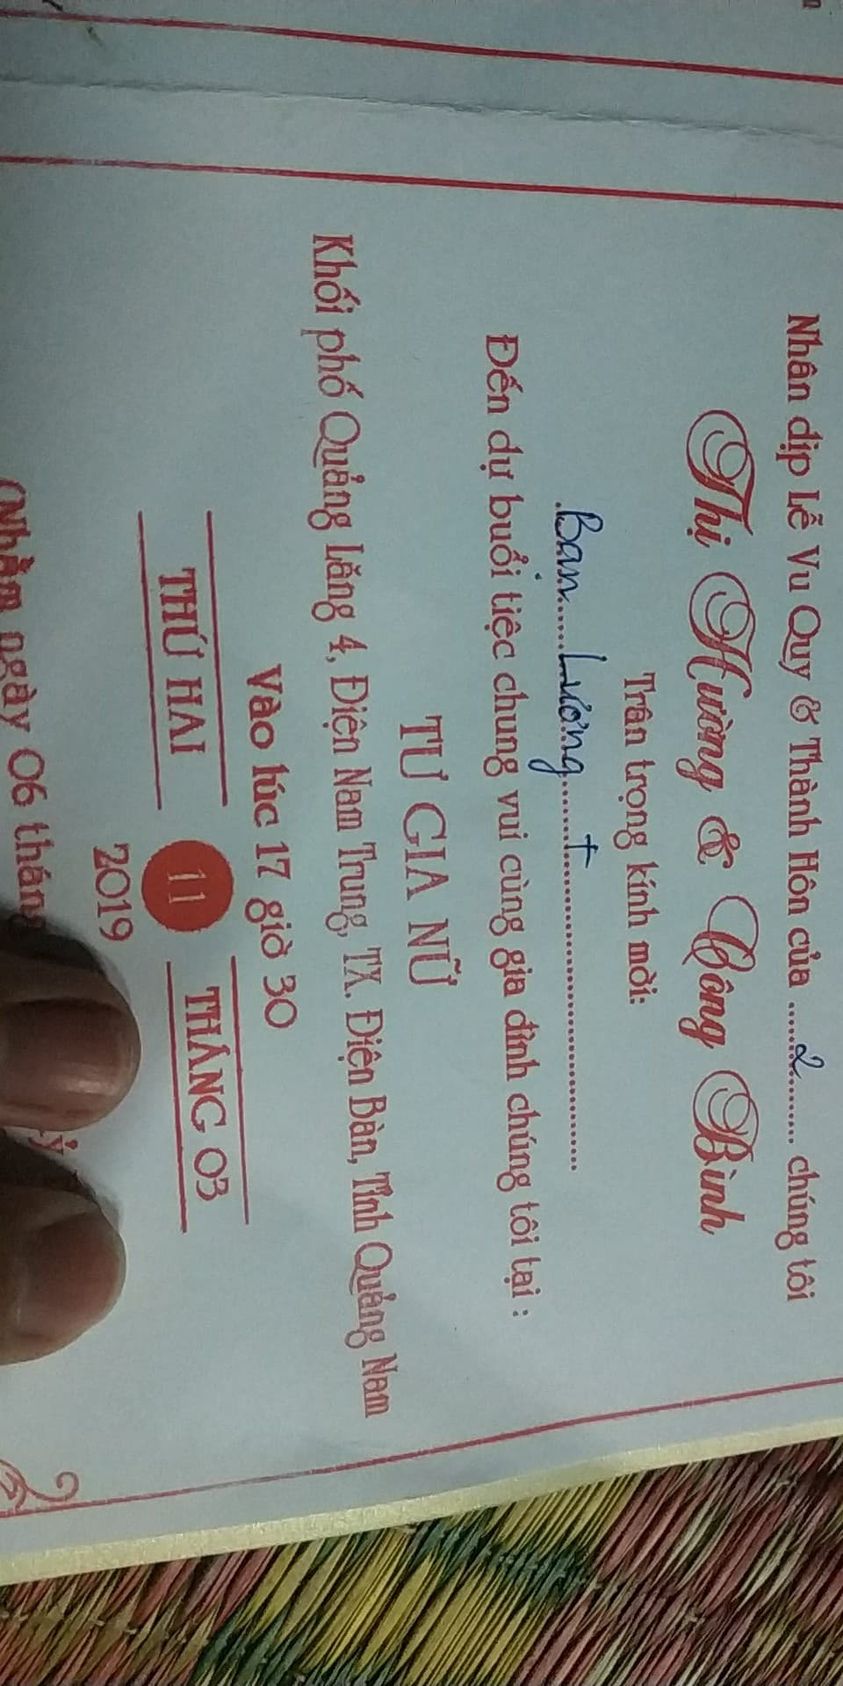 Nhân dịp Lễ Vu Quy & Thành Hôn của ....2.... chúng tôi
Thị Hường & Công Bình
Trân trọng kính mời:
Bạn Lương +
Đến dự buổi tiệc chung vui cùng gia đình chúng tôi tại :
TƯ GIA NỮ
Khối phố Quảng Lăng 4, Điện Nam Trung, TX. Điện Bàn, Tỉnh Quảng Nam
Vào lúc 17 giờ 30
THỨ HAI 11 THÁNG 03
2019
(Nhằm ngày 06 tháng